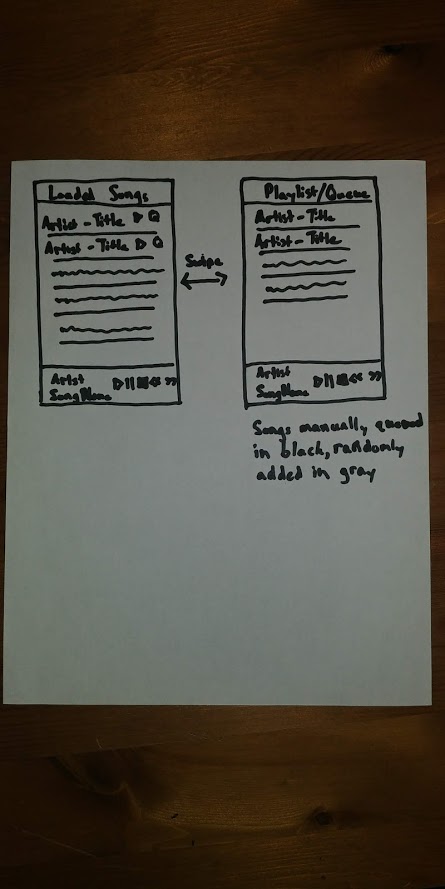 Loaded Songs
Artist - Title Q
Artist - Title Q
Artist
Song Name
Swipe
Playlist/Queue
Artist - Title
Artist - Title
Artist
Song Name
Songs manually queued
in black, randomly
added in gray